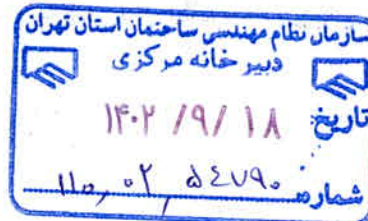 سازمان نظام مهندسی ساختمان استان تهران
دبیر خانه مرکزی
تاریخ ۱۴۰۲ /۹/ ۱۸
شماره ۱۱۰,۰۲,۵۴۷۹۰